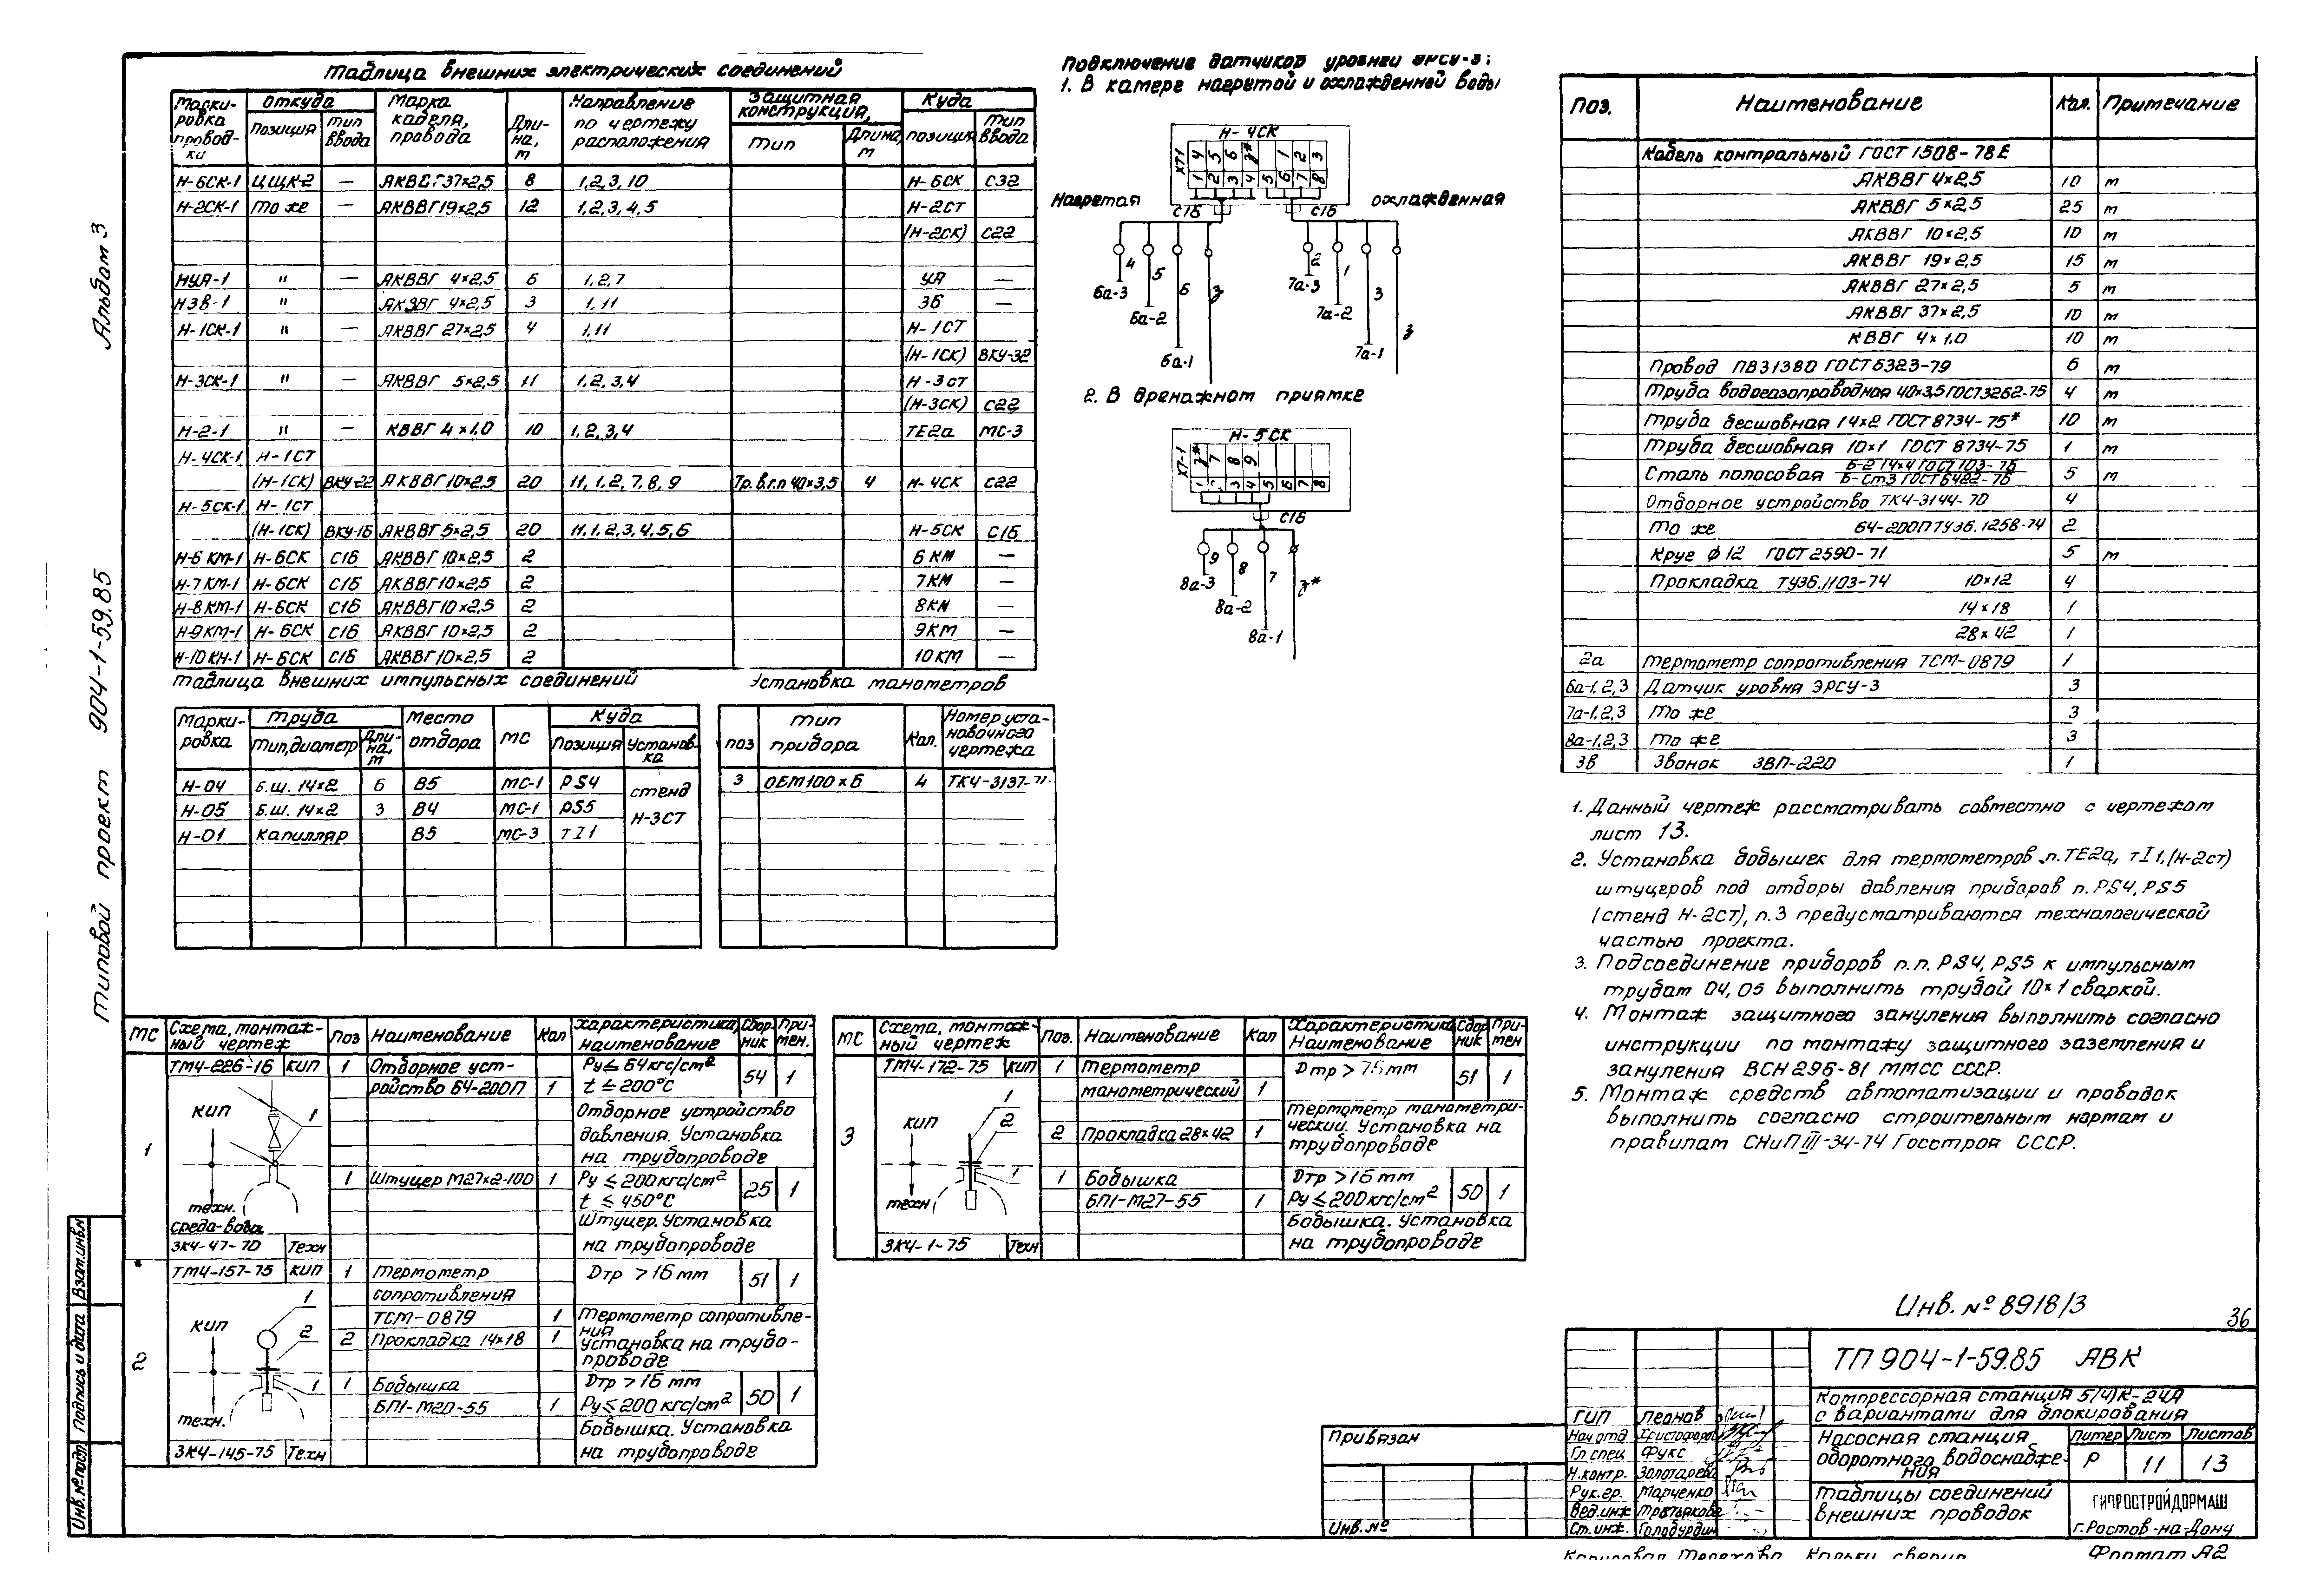 Альбом 3
Типовой проект 904-1-59.85
Таблица внешних электрических соединений
Марки-ровка провод-ки | Откуда | Марка кабеля, провода | Дли-на, м | Направление по чертежу расположения | Защитная конструкция, | Куда
позиция | тип ввода | тип | Длина, м | позиция | тип ввода
Н-6СК-1 ЦЩК-2 — АКВВГ37×2,5 8 1,2,3,10 Н-6СК С32
Н-2СК-1 То же — АКВВГ19×2,5 12 1,2,3,4,5 Н-2СТ
(Н-2СК) С22
НУА-1 " — АКВВГ 4×2,5 6 1,2,7 УА —
НЗВ-1 " АКВВГ 4×2,5 3 1,11 —
Н-1СК-1 " — АКВВГ 27×2,5 4 1,11 Н-1СТ
(Н-1СК) ВКУ-32
Н-3СК-1 " — АКВВГ 5×2,5 11 1,2,3,4 Н-3СТ
(Н-3СК) С22
Н-2-1 " — КВВГ 4×1,0 10 1,2,3,4 ТЕ2а МС-3
Н-4СК-1 Н-1СТ
(Н-1СК) ВКУ-22 АКВВГ10×2,5 20 11,1,2,7,8,9 Тр.в.г.п 40×3,5 4 Н-4СК С22
Н-5СК-1 Н-1СТ
(Н-1СК) ВКУ-16 АКВВГ5×2,5 20 11,1,2,3,4,5,6 Н-5СК С16
Н-6КМ-1 Н-6СК С16 АКВВГ10×2,5 2 6КМ —
Н-7КМ-1 Н-6СК С16 АКВВГ10×2,5 2 7КМ —
Н-8КМ-1 Н-6СК С16 АКВВГ10×2,5 2 8КМ —
Н-9КМ-1 Н-6СК С16 АКВВГ10×2,5 2 9КМ —
Н-10КН-1 Н-6СК С16 АКВВГ10×2,5 2 10КМ —
Таблица внешних импульсных соединений
Марки-ровка | Труда | Место отбора | МС | Куда
Тип, диаметр | Дли-на, м | Позиция | Установ-ка
Н-04 Б.ш. 14×2 6 В5 МС-1 PS4 стенд
Н-05 Б.ш. 14×2 3 В4 МС-1 PS5 Н-3СТ
Н-01 Капилляр В5 МС-3 TI1
Установка манометров
поз | тип прибора | Кол. | Номер уста-новочного чертежа
3 ОБМ100×6 4 ТК4-3137-71
Подключение датчиков уровней ЭРСУ-3:
1. В камере нагретой и охлажденной воды
Н-4СК
ХТ1
4 5 6 з* 1 2 3
1 2 3 4 5 6 7 8
Нагретая С16 С16 охлажденная
4 5 6 з 2 1 3 з
6а-3 6а-2 6а-1 7а-3 7а-2 7а-1
2. В дренажном приямке
Н-5СК
ХТ-1
з* 7 8 9
1 2 3 4 5 6 7 8
С16
9 8 7 з*
8а-3 8а-2 8а-1
Поз. | Наименование | Кол. | Примечание
Кабель контральный ГОСТ 1508-78Е
АКВВГ 4×2,5 10 м
АКВВГ 5×2,5 25 м
АКВВГ 10×2,5 10 м
АКВВГ 19×2,5 15 м
АКВВГ 27×2,5 5 м
АКВВГ 37×2,5 10 м
КВВГ 4×1.0 10 м
Провод ПВ3 1380 ГОСТ6323-79 6 м
Труба водогазопроводная 40×3,5 ГОСТ3262-75 4 м
Труба бесшовная 14×2 ГОСТ 8734-75* 10 м
Труба бесшовная 10×1 ГОСТ 8734-75 1 м
Сталь полосовая Б-2 14×4 ГОСТ 103-76 / Б-Ст3 ГОСТ 6422-76 5 м
Отборное устройство ТК4-3144-70 4
То же 64-200П ТУ36.1258-74 2
Круг ф12 ГОСТ 2590-71 5 м
Прокладка ТУ36.1103-74 10×12 4
14×18 1
28×42 1
2а Термометр сопротивления ТСМ-0879 1
6а-1,2,3 Датчик уровня ЭРСУ-3 3
7а-1,2,3 То же 3
8а-1,2,3 То же 3
3В Звонок ЗВП-220 1
1. Данный чертеж рассматривать совместно с чертежом
лист 13.
2. Установка бобышек для термометров п.ТЕ2а, TI1,(Н-2ст)
штуцеров под отборы давления приборов п.PS4, PS5
(стенд Н-2СТ), п.3 предусматриваются технологической
частью проекта.
3. Подсоединение приборов п.п. PS4, PS5 к импульсным
трубам 04, 05 выполнить трубой 10×1 сваркой.
4. Монтаж защитного зануления выполнить согласно
инструкции по монтажу защитного заземления и
зануления ВСН 296-81 ММСС СССР.
5. Монтаж средств автоматизации и проводок
выполнить согласно строительным нормам и
правилам СНиП III-34-74 Госстроя СССР.
МС | Схема, монтаж-ный чертеж | Поз | Наименование | Кол | Характеристика, наименование | Сбор-ник | При-мен.
1 ТМ4-226-16 КИП 1 Отборное уст-ройство 64-200П 1 Ру ≤ 64кгс/см² t ≤ 200°С 54 1
КИП 1
Отборное устройство
давления. Установка
на трубопроводе
1 Штуцер М27×2-100 1 Ру ≤ 200кгс/см² t ≤ 450°С 25 1
техн.
среда-вода
Штуцер. Установка
на трубопроводе
ЗК4-47-70 Техн
2 ТМ4-157-75 КИП 1 Термометр Дтр > 16мм 51 1
сопротивления
ТСМ-0879 1
КИП 1 2
2 Прокладка 14×18 1
Термометр сопротивле-
ния
Установка на трубо-
проводе
1 1 Бобышка Дтр > 16 мм
БП1-М20-55 1 Ру ≤ 200 кгс/см² 50 1
техн.
Бобышка. Установка
на трубопроводе
ЗК4-145-75 Техн
МС | Схема, монтаж-ный чертеж | Поз. | Наименование | Кол | Характеристика Наименование | Сбор ник | При-мен
3 ТМ4-172-75 КИП 1 Термометр Dтр > 76мм 51 1
манометрический 1
КИП 1 2
Термометр манометри-
ческий. Установка на
трубопроводе
2 Прокладка 28×42 1
1 1 Бобышка Дтр > 16 мм
БП1-М27-55 1 Ру ≤ 200кгс/см² 50 1
техн
Бобышка. Установка
на трубопроводе
ЗК4-1-75 Техн
Инв. № 8918/3
36
ТП 904-1-59.85 АВК
Компрессорная станция 5(4)К-24А
с вариантами для блокирования
Насосная станция
оборотного водоснабже-
ния
Литер Лист Листов
Р 11 13
Таблицы соединений
внешних проводок
ГИПРОСТРОЙДОРМАШ
г. Ростов-на-Дону
ГИП Леонов
Нач.отд Христофоров
Гл.спец Фукс
Н.контр. Золотарева
Рук.гр. Марченко
Вед.инж Третьякова
Ст.инж. Голобурдин
Привязан
Инв. №
Взам.инв.№
Подпись и дата
Инв.№ подл.
Копировал Терехова Кальку сверил
Формат А2